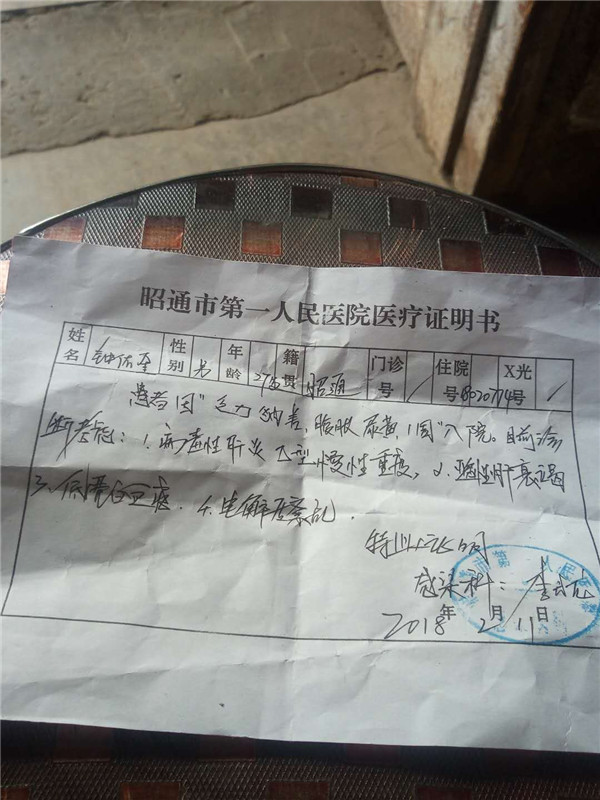 昭通市第一人民医院医疗证明书
姓名 钟佑奎 性别 男 年龄 27岁 籍贯 昭通 门诊号 / 住院号 X光号 /
患者因"乏力纳差,腹胀尿黄1周"入院。目前诊
断考虑:1.病毒性肝炎 乙型 慢性重度,2.慢性肝衰竭
3.低蛋白血症. 4.电解质紊乱.
特此证明
感染科:李
2018年2月11日